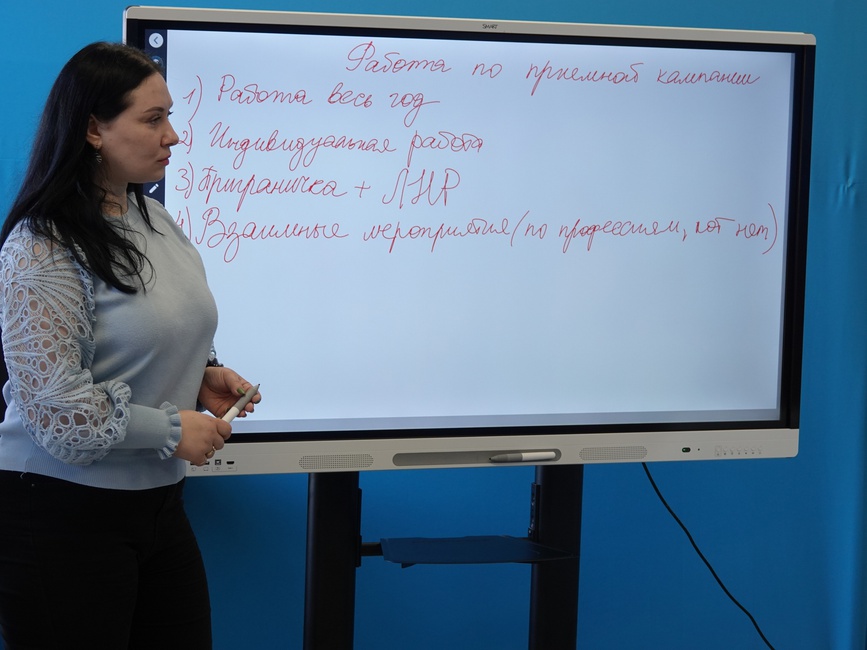 SMART
Работа по приемной кампании
1) Работа весь год
2) Индивидуальная работа
3) Приграничка + ЛНР
4) Взаимные мероприятия (по профессиям, кот нет)